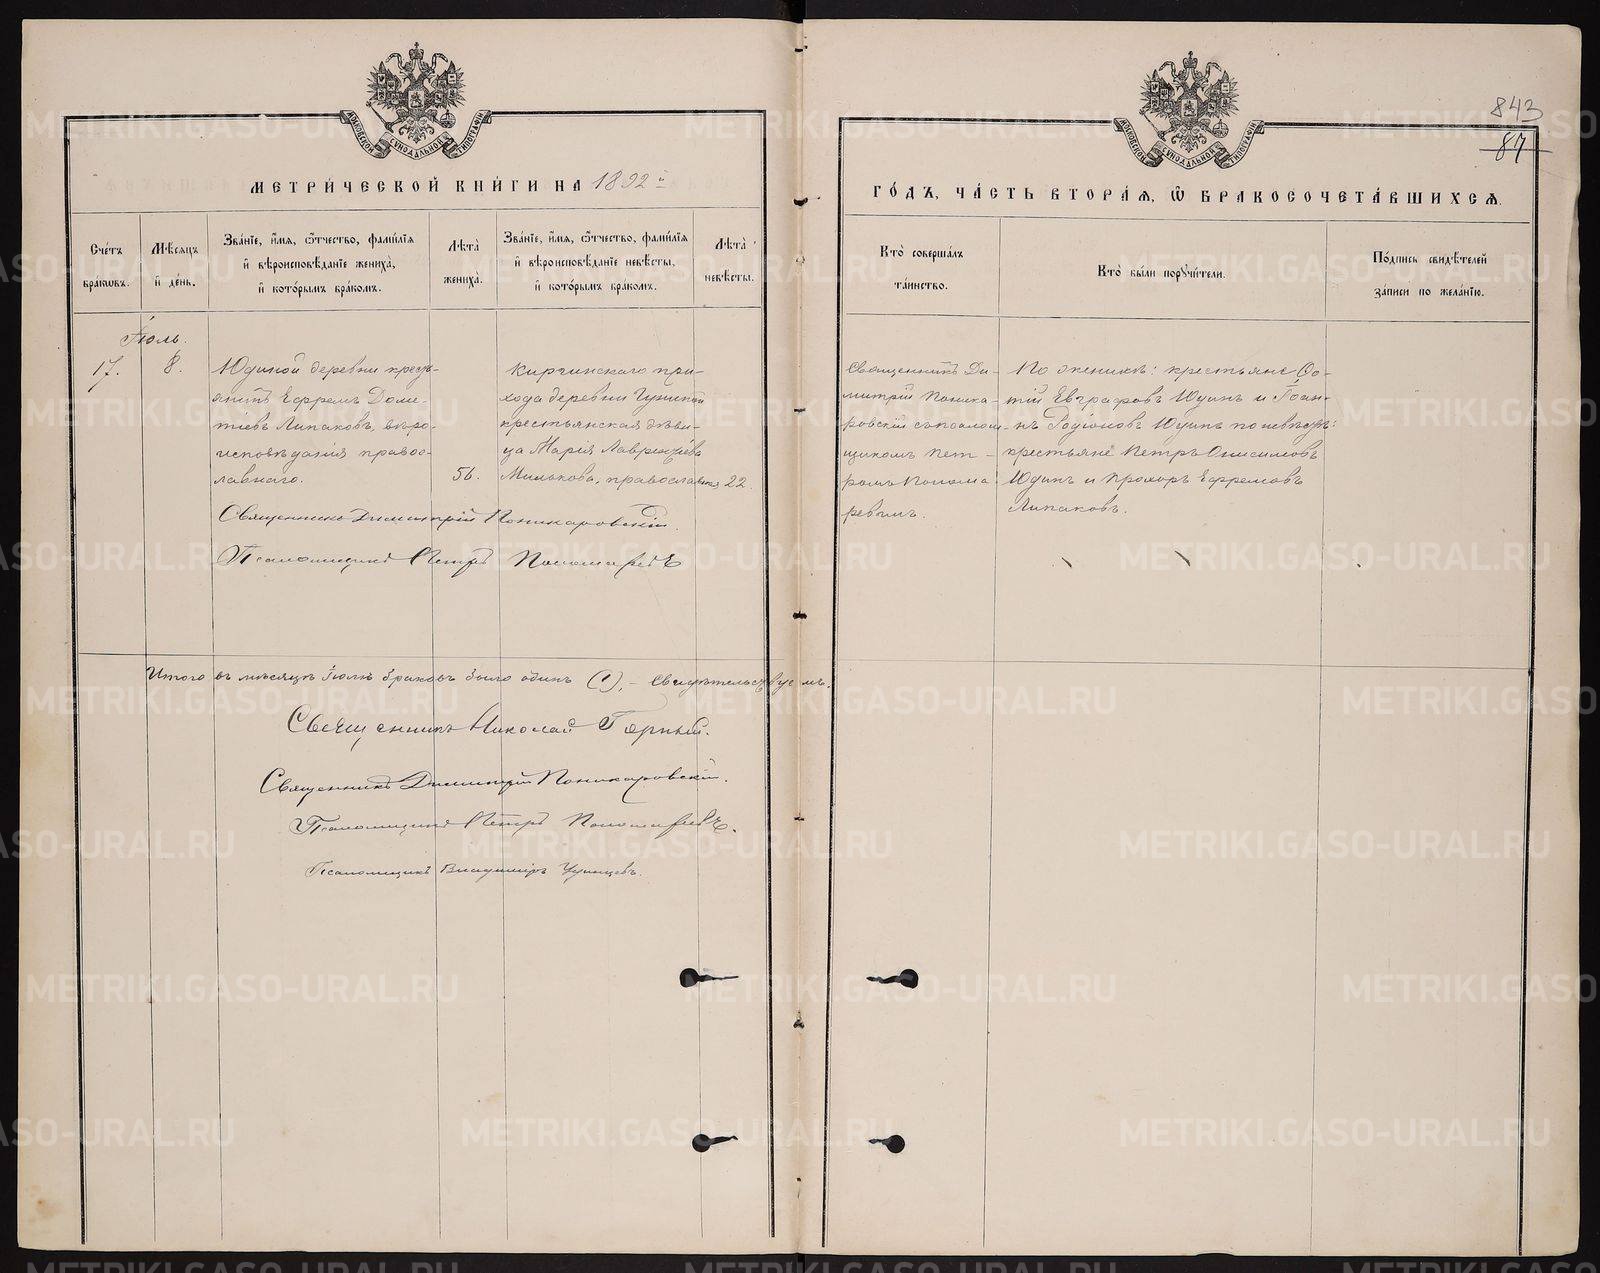 843
87
МЕТРИ́ЧЕСКОЙ КНИ́ГИ НА 1892 й
ГО́ДЪ, ЧА́СТЬ ВТОРА́Я, Ѡ БРАКОСОЧЕТА́ВШИХСЯ.
МОСКОВСКОЙ СѴНОДАЛЬНОЙ ТИПОГРАФІИ
МОСКОВСКОЙ СѴНОДАЛЬНОЙ ТИПОГРАФІИ
Сче́тъ
бра́кѡвъ.
Мѣ́сяцъ
и҆ де́нь.
Зва́нїе, и҆́мя, ѻ҆́тчество, фами́лїя
и҆ вѣроисповѣ́данїе жениха̀,
и҆ кото́рымъ бра́комъ.
Лѣ́та
жениха̀.
Зва́нїе, и҆́мя, ѻ҆́тчество, фами́лїя
и҆ вѣроисповѣ́данїе невѣ́сты,
и҆ кото́рымъ бра́комъ.
Лѣ́та
невѣ́сты.
Кто̀ соверша́лъ
та́инство.
Кто̀ бы́ли порꙋчи́тели.
По́дпись свидѣ́телей
за́писи по жела́нїю.
Іюль.
17.
8.
Юдиной деревни кресть-
янинъ Ефремъ Доме-
тіевъ Липаковъ, вѣро-
исповѣданія правос-
лавнаго.
56.
Киргинскаго при-
хода деревни
крестьянская дѣви-
ца Марія Лаврентіева
Милькова, православная
22.
Священникъ Ди-
митрій Поника-
ровскій съ псалом-
щикомъ Пет-
ромъ Понома-
ревымъ.
По женихѣ: крестьяне Фо-
тій Евграфовъ Юдинъ и Іоан-
нъ Родіоновъ Юдинъ по невѣстѣ:
крестьяне Петръ Онисимовъ
Юдинъ и Прохоръ Ефремовъ
Липаковъ.
Священникъ Димитрій Поникаровскій.
Псаломщикъ Петръ Пономаревъ
Итого въ мѣсяцѣ Іюлѣ браковъ было одинъ (1), – Свидѣтельствуемъ.
Священникъ Николай Горный.
Священникъ Димитрій Поникаровскій.
Псаломщикъ Петръ Пономаревъ.
Псаломщикъ Владиміръ
METRIKI.GASO-URAL.RU